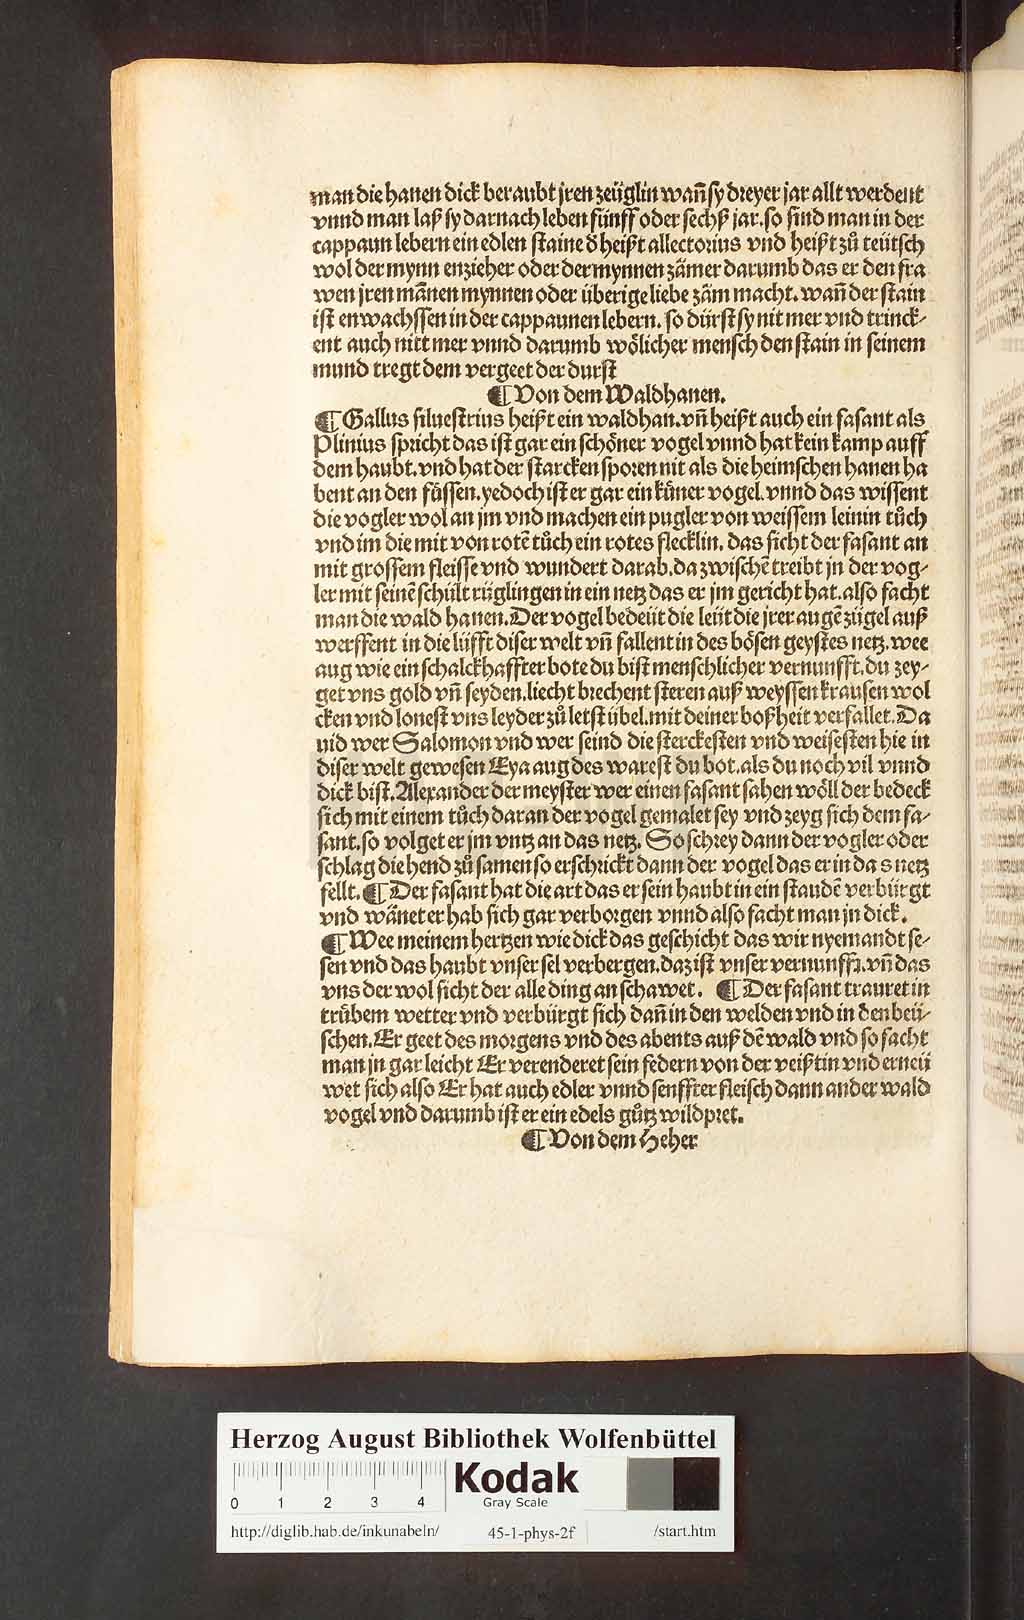 man die hanen dick beraubt jren zeüglin wañ sy dreyer jar allt werdent
vnnd man laß sy darnach leben fünff oder sechß jar. so find man in der
cappaun lebern ein edlen staine d̕ heißt allectorius vnd heißt zů teütsch
wol der mynn enzieher oder der mynnen zämer darumb das er den fra
wen jren mãnen mynnen oder überige liebe zäm macht. wañ der stain
ist enwachssen in der cappaunen lebern. so dürst sy nit mer vnd trinck-
ent auch nitt mer vnnd darumb wölicher mensch den stain in seinem
mund tregt dem vergeet der durst
¶ Von dem Waldhanen.
¶ Gallus siluestrius heißt ein waldhan. vñ heißt auch ein fasant als
Plinius spricht das ist gar ein schöner vogel vnnd hat kein kamp auff
dem haubt. vnd hat der starcken sporen nit als die heimschen hanen ha
bent an den fůssen. yedoch ist er gar ein kůner vogel. vnnd das wissent
die vogler wol an jm vnd machen ein pugler von weissem leinin tůch
vnd im die mit von rotẽ tůch ein rotes flecklin. das sicht der fasant an
mit grossem fleisse vnd wundert darab. da zwischẽ treibt jn der vog-
ler mit seinẽ schült rüglingen in ein netz das er jm gericht hat. also facht
man die wald hanen. Der vogel bedeüt die leüt die jrer augẽ zügel auß
werffent in die lüfft diser welt vñ fallent in des bösen geystes netz. wee
aug wie ein schalckhaffter bote du bist menschlicher vernunfft. du zey-
get vns gold vñ seyden. liecht brechent steren auß weyssen krausen wol
cken vnd lonest vns leyder zů letst übel. mit deiner boßheit verfallet. Da
uid wer Salomon vnd wer seind die sterckesten vnd weisesten hie in
diser welt gewesen Eya aug des warest du bot. als du noch vil vnnd
dick bist. Alexander der meyster wer einen fasant fahen wöll der bedeck
sich mit einem tůch daran der vogel gemalet sey vnd zeyg sich dem fa-
sant. so volget er jm vntz an das netz. So schrey dann der vogler oder
schlag die hend zů samen so erschrickt dann der vogel das er in das netz
fellt. ¶ Der fasant hat die art das er sein haubt in ein staudẽ verbürgt
vnd wänet er hab sich gar verborgen vnnd also facht man jn dick.
¶ Wee meinem hertzen wie dick das geschicht das wir nyemandt se-
sen vnd das haubt vnser sel verbergen. daz ist vnser vernunfft. vñ das
vns der wol sicht der alle ding an schawet. ¶ Der fasant trauret in
trůbem wetter vnd verbürgt sich dañ in den welden vnd in den beü-
schen. Er geet des morgens vnd des abents auß dẽ wald vnd so facht
man jn gar leicht Er verenderet sein federn von der veißtin vnd erneü
wet sich also Er hat auch edler vnnd senffter fleisch dann ander wald
vogel vnd darumb ist er ein edels gůtz wildpret.
¶ Von dem Heher
Herzog August Bibliothek Wolfenbüttel
0 1 2 3 4
Kodak
Gray Scale
http://diglib.hab.de/inkunabeln/ 45-1-phys-2f /start.htm